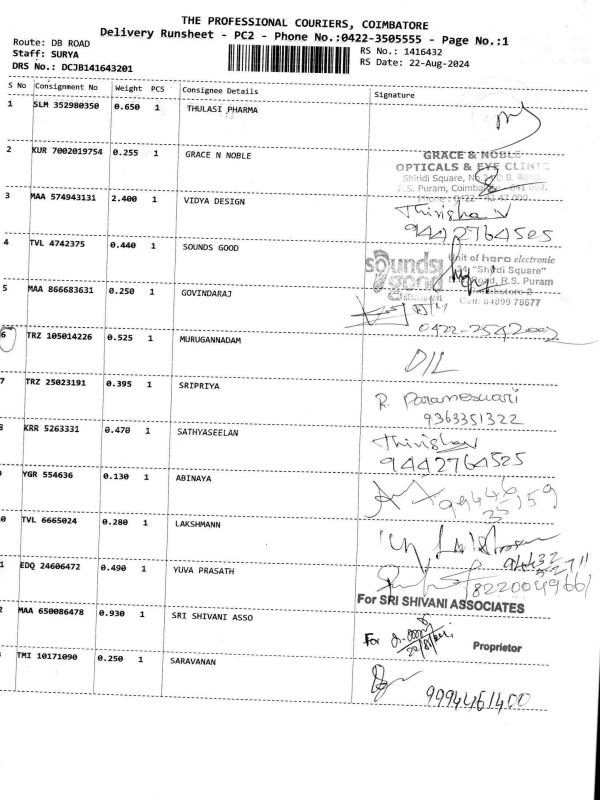 THE PROFESSIONAL COURIERS, COIMBATORE
Delivery Runsheet - PC2 - Phone No.:0422-3505555 - Page No.:1
Route: DB ROAD
Staff: SURYA
DRS No.: DCJB141643201
RS No.: 1416432
RS Date: 22-Aug-2024
S No Consignment No Weight PCS Consignee Details Signature
1 SLM 352980350 0.650 1 THULASI PHARMA
2 KUR 7002019754 0.255 1 GRACE N NOBLE
GRACE & NOBLE
OPTICALS & EYE CLINIC
Shiridi Square, No. D.B. Road,
R.S. Puram, Coimbatore - 641 002.
3 MAA 574943131 2.400 1 VIDYA DESIGN
9442764525
4 TVL 4742375 0.440 1 SOUNDS GOOD
sounds good
Unit of haro electronic
"Shirdi Square"
R.S. Puram
5 MAA 866683631 0.250 1 GOVINDARAJ
6 TRZ 105014226 0.525 1 MURUGANNADAM
D/L
7 TRZ 25023191 0.395 1 SRIPRIYA
R. Parameswari
9363351322
8 KRR 5263331 0.470 1 SATHYASEELAN
9442764525
YGR 554636 0.130 1 ABINAYA
0 TVL 6665024 0.280 1 LAKSHMANN
1 EDQ 24606472 0.490 1 YUVA PRASATH
8220049661
2 MAA 650086478 0.930 1 SRI SHIVANI ASSO
For SRI SHIVANI ASSOCIATES
For
Proprietor
TMI 10171090 0.250 1 SARAVANAN
9994461400